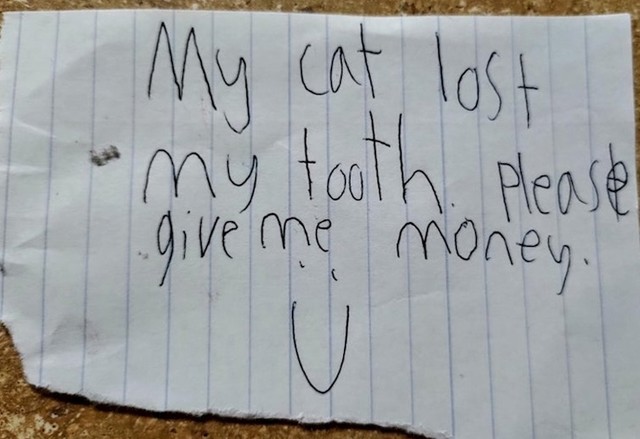 My cat lost
my tooth. please
give me money.